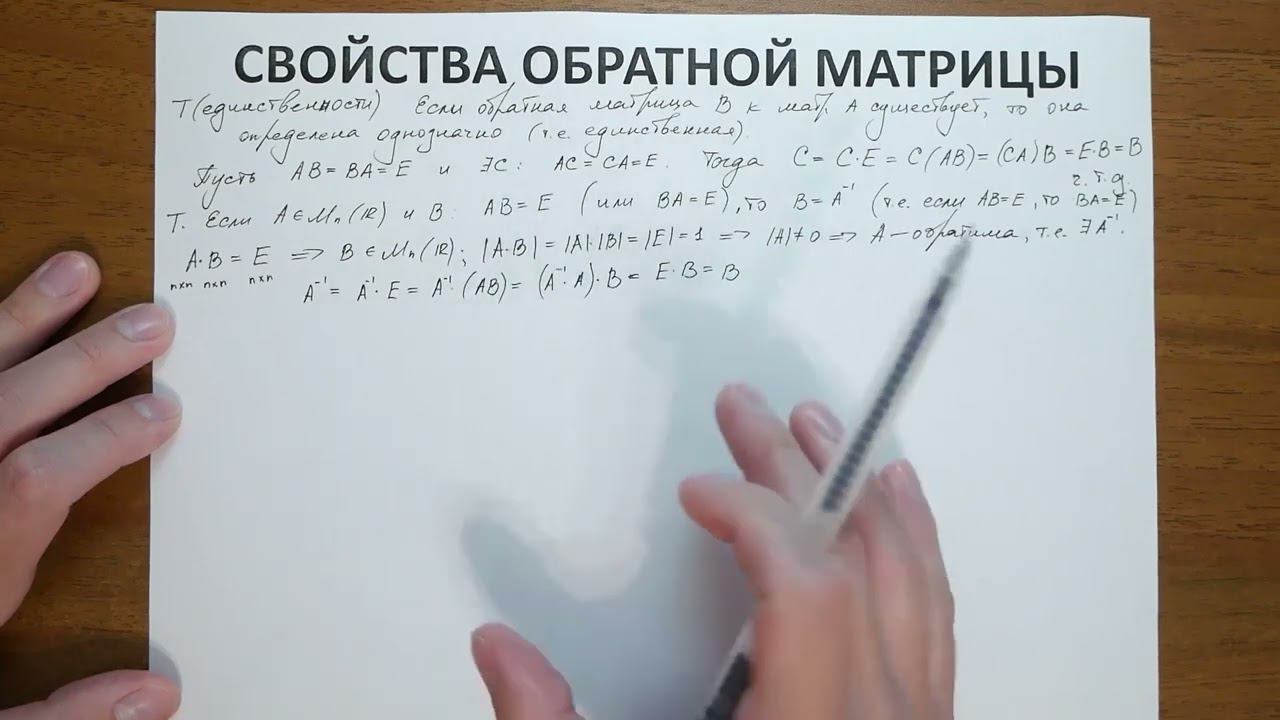 СВОЙСТВА ОБРАТНОЙ МАТРИЦЫ
Т(единственности) Если обратная матрица B к матр. A существует, то она
определена однозначно (т.е. единственная).
Пусть AB = BA = E и ∃C: AC = CA = E. Тогда C = C·E = C(AB) = (CA)B = E·B = B
ч.т.д.
Т. Если A ∈ Mn(ℝ) и B: AB = E (или BA = E), то B = A⁻¹ (т.е. если AB = E, то BA = E)
A·B = E ⇒ B ∈ Mn(ℝ); |A·B| = |A|·|B| = |E| = 1 ⇒ |A| ≠ 0 ⇒ A – обратима, т.е. ∃A⁻¹.
n×n n×n n×n
A⁻¹ = A⁻¹·E = A⁻¹·(AB) = (A⁻¹·A)·B = E·B = B